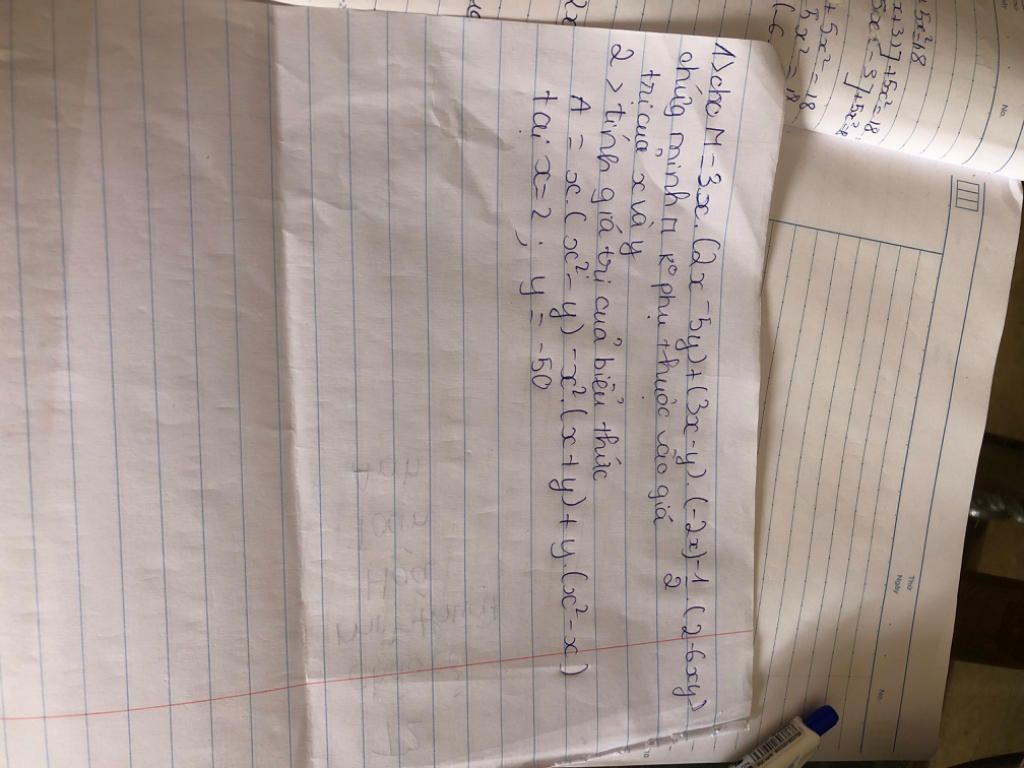 1) cho M = 3x.(2x - 5y) + (3x - y).(-2x) - 1/2.(2 - 6xy)
chứng minh M k° phụ thuộc vào giá
trị của x và y
2> tính giá trị của biểu thức
A = x.(x² - y) - x².(x + y) + y.(x² - x)
tại x = 2; y = -50
+ 5x² = 18
5x² = 18
No.
Thứ
Ngày
No